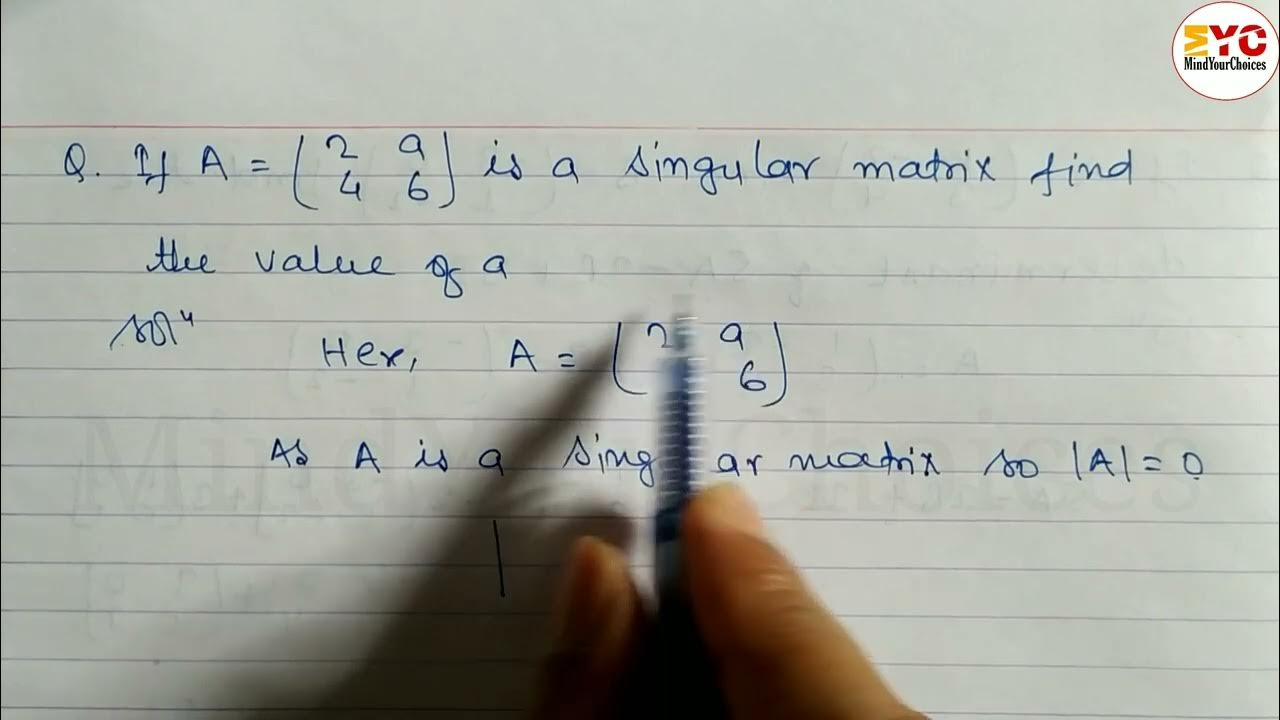 MYC
MindYourChoices
Q. If A = ( 2 a
4 6 ) is a singular matrix find
the value of a
Solⁿ
Her, A = ( 2 a
6 )
As A is a sing ar matrix so |A| = 0
|
MindYourChoices